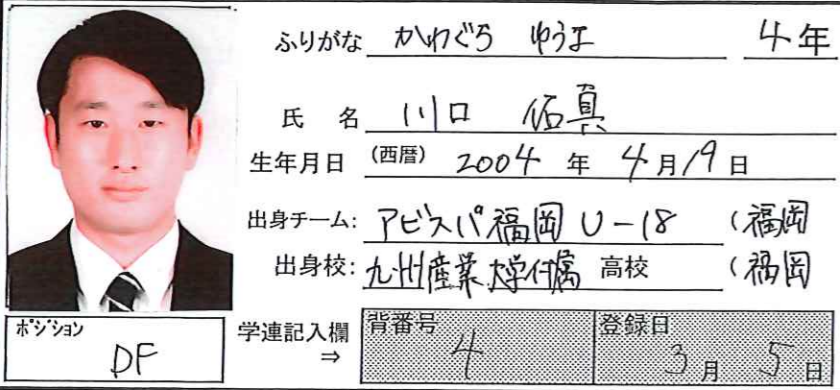 ふりがな かわぐち ゆうま 4年
氏 名 川口 佑真
生年月日 (西暦) 2004 年 4月19日
出身チーム: アビスパ福岡 U-18 (福岡
出身校: 九州産業大学付属 高校 (福岡
ポジション DF
学連記入欄 ⇒ 背番号 4 登録日 3月 5日